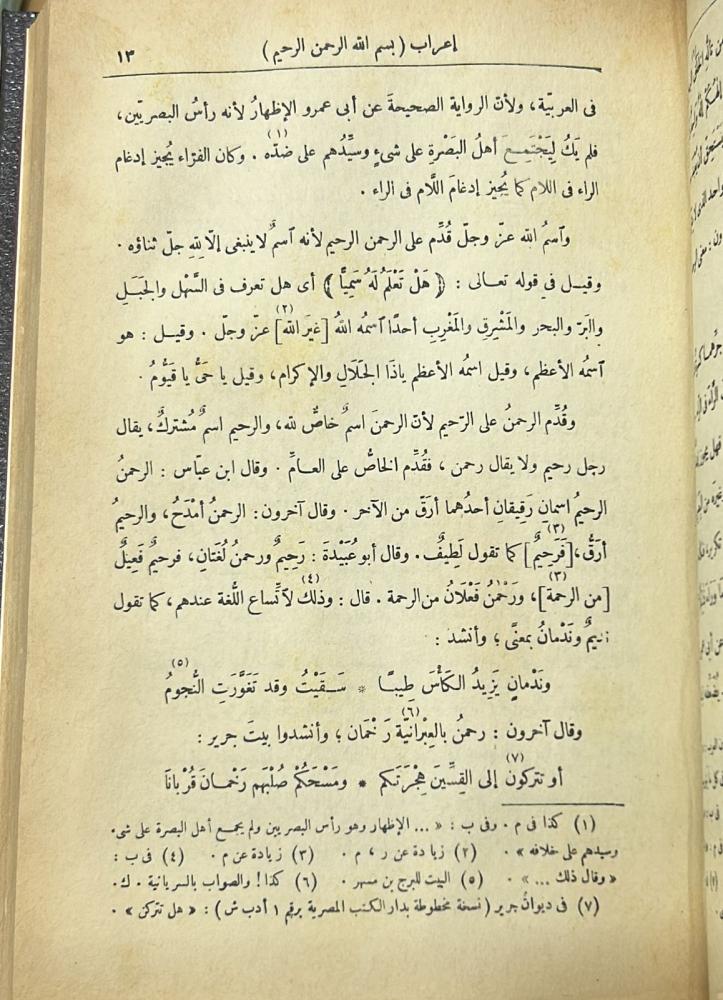 إعراب ( بسم الله الرحمن الرحيم ) ١٣
فى العربيّة، ولأن الرواية الصحيحة عن أبى عمرو الإظهارُ لأنه رأسُ البصريّين،
فلم يَكُ ليَجْتَمِــعَ أهلُ البَصْرةِ على شىءٍ وسيِّدُهم على ضدّه (١) . وكان الفرّاء يُجيز إدغام
الراء فى اللام كما يُجيز إدغامَ اللّام فى الراء .
وآسمُ الله عزّ وجلّ قُدِّم على الرحمن الرحيم لأنه آسمٌ لا ينبغى إلّا لِلّهِ جلّ ثناؤه .
وقيــل فى قوله تعــالى : ﴿ هَلْ تَعْلَمُ لَهُ سَمِيًّا ﴾ أى هل تعرف فى السَّهْل والجَبَلِ
والبَرّ والبحر والمَشْرِقِ والمَغْرِبِ أحدًا آسمُه اللهُ [غيرَ الله (٢)] عزّ وجلّ . وقيــل : هو
آسمُه الأعظم، وقيل اسمُه الأعظم ياذَا الجَلَالِ والإكرام، وقيل يا حَىُّ يا قَيُّومُ .
وقُدِّم الرحمنُ على الرّحيم لأنّ الرحمنَ اسمٌ خاصٌّ لله، والرحيم اسمٌ مُشتركٌ، يقال
رجل رحيم ولا يقال رحمن ، فقُدِّم الخاصُّ على العــامِّ . وقال ابن عبّاس : الرحمنُ
الرحيمُ اسمانِ رَقِيقانِ أحدُهما أرَقّ من الآخر . وقال آخرون : الرحمنُ أمْدَحُ، والرحيمُ
أرَقُّ، [فَرَحِيمٌ (٣)] كما تقول لَطِيفٌ . وقال أبو عُبَيْدةَ : رَحِيمٌ ورحمنُ لُغَتَانِ، فرحيمٌ فَعِيلٌ
[من الرحمة (٣)]، ورَحْمٰنُ فَعْلَانُ من الرحمة . قال : وذلك (٤) لآتِّساع اللّغة عندهم، كما تقول
نديمٌ ونَدْمانُ بمعنًى ؛ وأنشد :
ونَدْمانٍ يَزِيدُ الكَأْسَ طِيبًا * سَــقَيْتُ وقد تَغَوَّرَتِ النُّجومُ (٥)
وقال آخرون : رحمنُ بالعِبْرانيّة (٦) رَخْمَان ؛ وأنشدوا بيتَ جرير :
أو تتركون (٧) إلى القِسِّينَ هِجْرَتَكم * ومَسْحَكُمْ صُلْبَهم رَخْمانَ قُرْبانَا
(١) كذا فى م . وفى ب : « ... الإظهار وهو رأس البصريين ولم يجمع أهل البصرة على شىء
وسيدهم على خلافه » . (٢) زيادة عن ر ، م . (٣) زيادة عن م . (٤) فى ب :
« وقال ذلك ... » . (٥) البيت للبرج بن مسهر . (٦) كذا ! والصواب بالسريانية . ك .
(٧) فى ديوان جرير ( نسخة مخطوطة بدار الكتب المصرية برقم ١ أدب ش ) : « هل تتركن » .